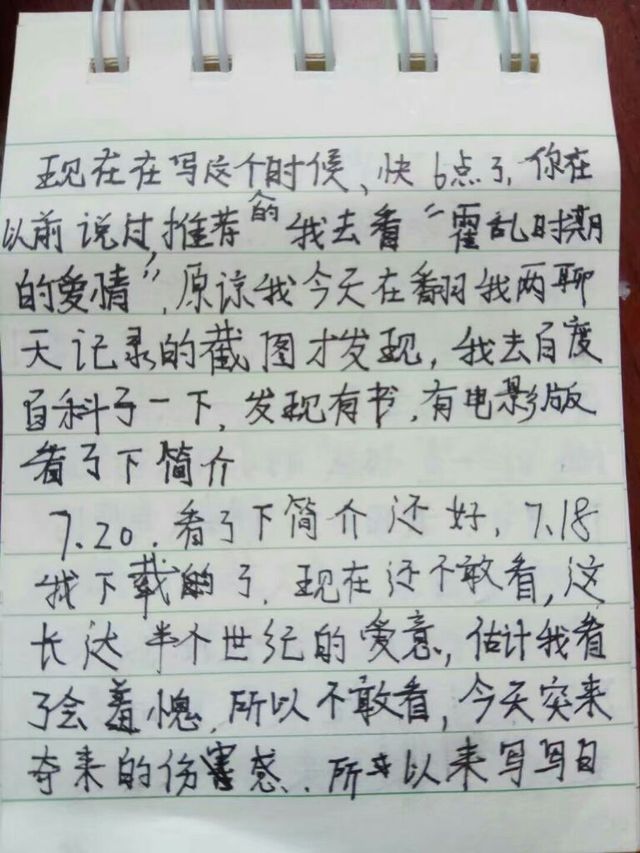 现在在写这个时候、快6点了,你在
以前说过,推荐的个我去看“霍乱时期
的爱情”,原谅我今天在翻我两聊
天记录的截图才发现,我去百度
百科了一下,发现有书,有电影版
看了下简介
7.20.看了下简介还好,7.18
我下载的了,现在还不敢看,这
长达半个世纪的爱意,估计我看
了会羞愧,所以不敢看,今天突来
夺来的伤害感、所以来写写日